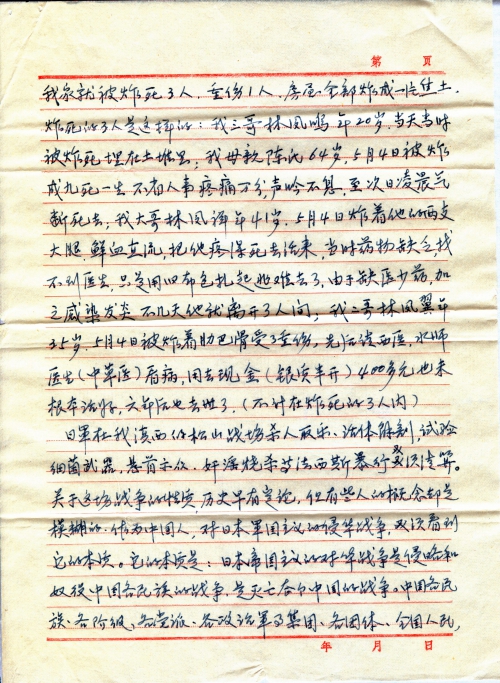 第 页
我家就被炸死3人，重伤1人，房屋全部炸成一片焦土.
炸死的3人是这样的：我三哥林凤鸣年20岁,当天当时
被炸死埋在土堆里，我母亲陈氏64岁，5月4日被炸
成九死一生 不省人事 疼痛万分,声吟不息，至次日凌晨气
断死去，我大哥林凤 年41岁. 5月4日炸着他的两支
大腿 鲜血直流，把他疼得死去活来，当时药物缺乏，找
不到医生，只是用四布包扎起 难去了，由于缺医少药，加
之感染发炎 不几天他就离开了人间，我二哥林凤翼年
35岁. 5月4日被炸着肋巴骨受了重伤，先后请西医，
医生(中草医)看病，用去现金(银洋半开)400多元也未
根本治好，六年后也去世了.(不计在炸死的3人内)
日军在我滇西 松山战场杀人取乐、活体解剖，试验
细菌武器，悬首示众、奸淫烧杀等法西斯暴行 清算。
关于这场战争的性质，历史早有定论，但有些人的概念却是
模糊的. 作为中国人，对日本军国主义的侵华战争，应该看到
它的本质。它的本质是：日本帝国主义的对华战争是侵略和
奴役中国各民族的战争，是灭亡 中国的战争。中国各民
族、各阶级、各党派、各政治军事集团、各团体、全国人民，
年 月 日